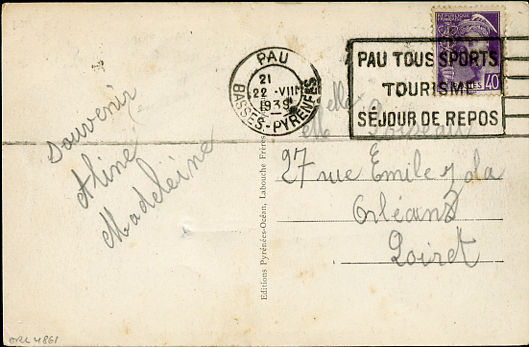 PAU
21
22 -VIII
1939
BASSES-PYRENEES
PAU TOUS SPORTS
TOURISME
SÉJOUR DE REPOS
RÉPUBLIQUE FRANÇAISE
POSTES 40c
Souvenir
Aline
Madeleine
Editions Pyrénées-Océan, Labouche Frères
Melle
27 rue Emile Zola
Orléans
Loiret
ORL 4861